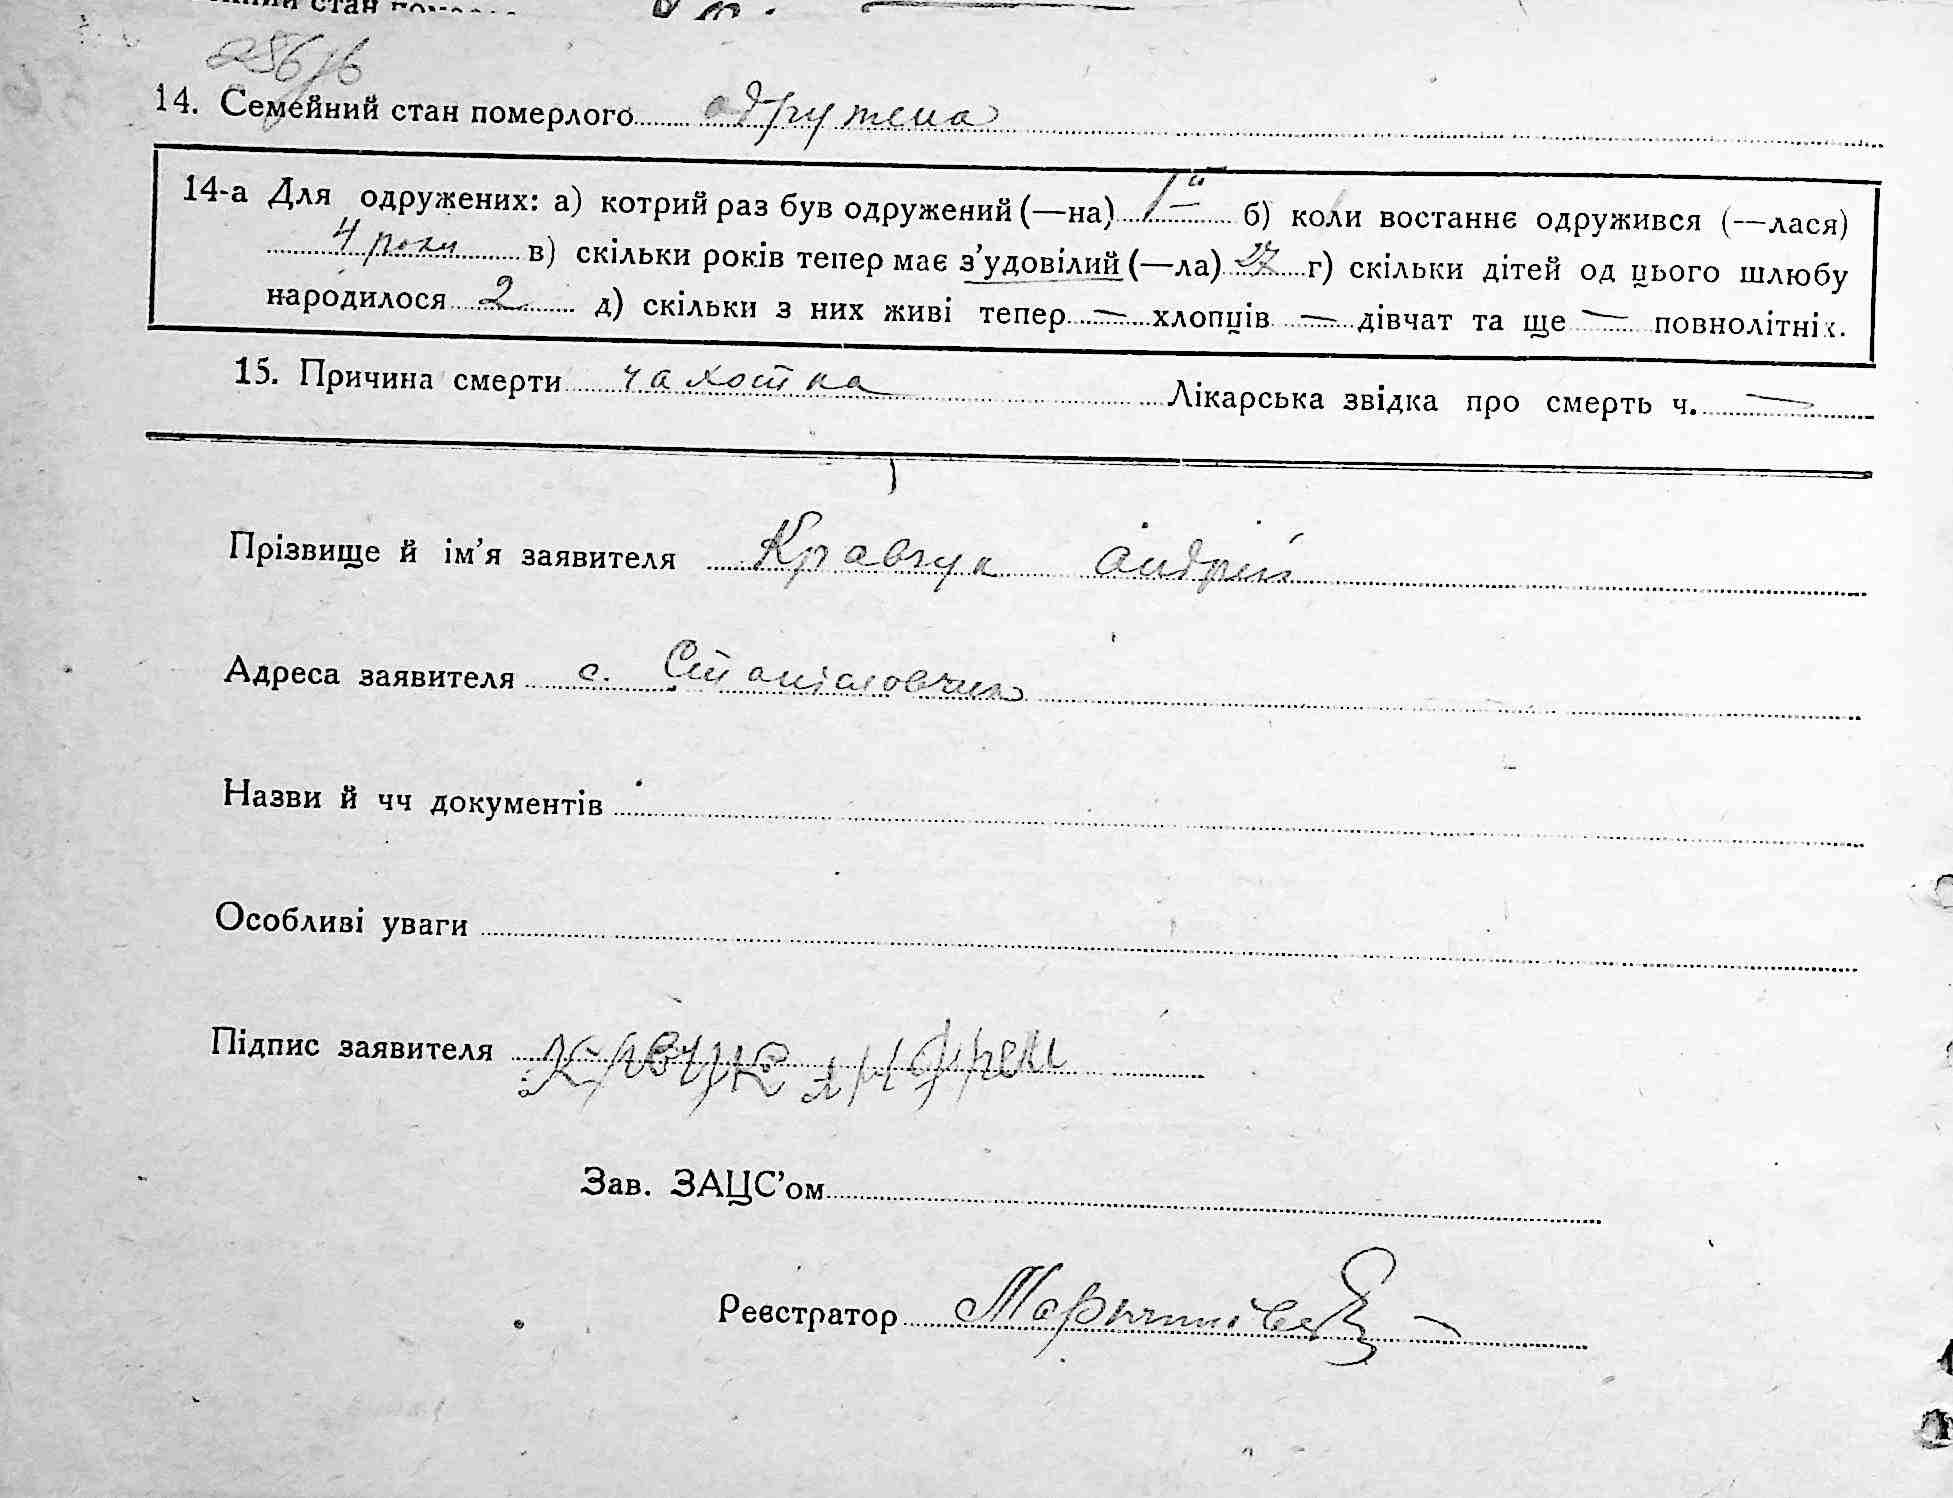 стан
14. Семейний стан померлого одружена
14-а Для одружених: а) котрий раз був одружений (—на) 1-й б) коли востаннє одружився (—лася)
4 роки в) скільки років тепер має з’удовілий (—ла) 27 г) скільки дітей од цього шлюбу
народилося 2 д) скільки з них живі тепер — хлопців — дівчат та ще — повнолітніх.
15. Причина смерти чахотка Лікарська звідка про смерть ч. —
Прізвище й ім’я заявителя Кравчук Андрій
Адреса заявителя с.
Назви й чч документів
Особливі уваги
Підпис заявителя
Зав. ЗАЦС’ом
Реєстратор